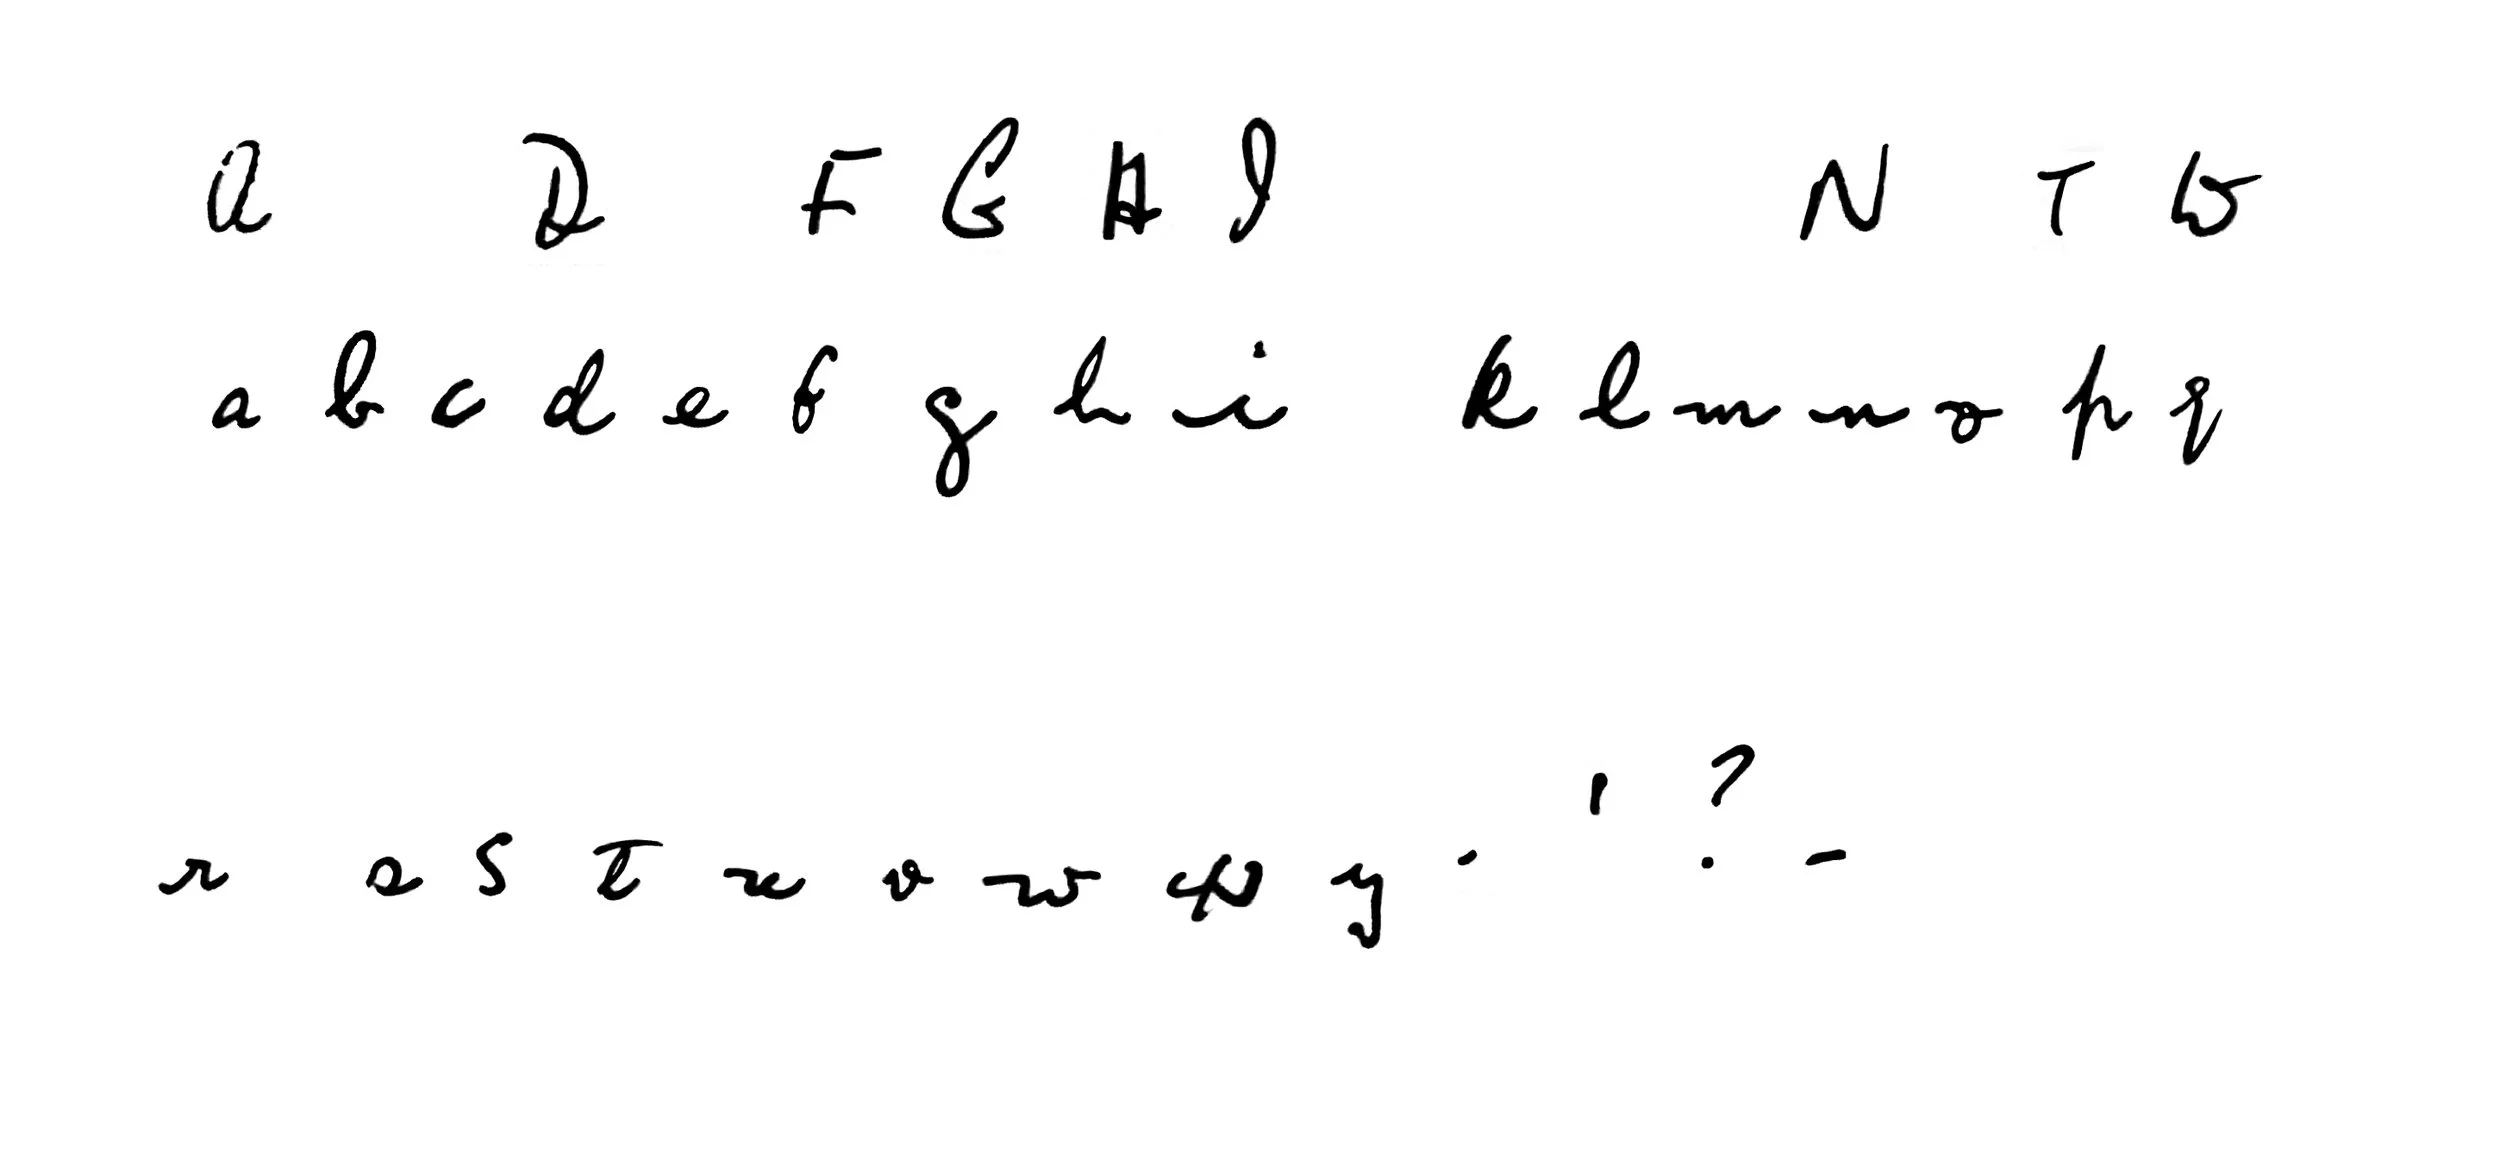 A D F G H I N T W
a b c d e f g h i k l m n o p q
r s s t u v w x y . ' ? -